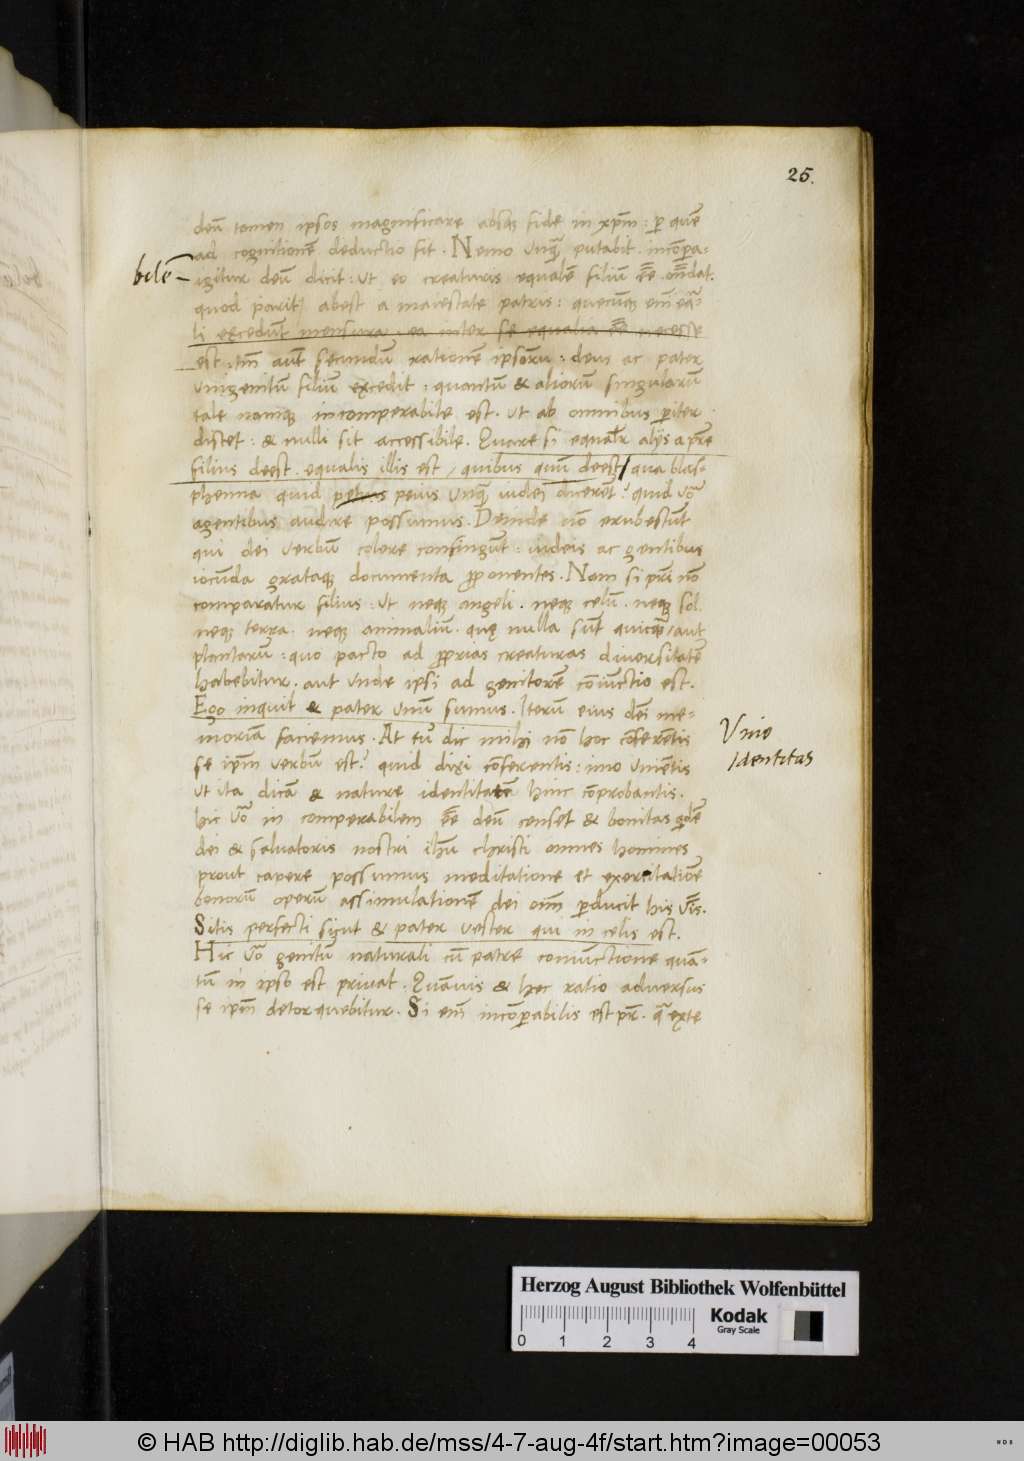 25.
deū tamen ipsos magnificare absq; fide in xp̄m : p quē
ad cognitionē deductio fit . Nemo Vnq̄ putabit . incōpa:
bilē igitur deū dicit : Vt eo creaturis equalē filiū ēē oñdat.
quod parit abest a maiestate patris : quecūq; em̄ eq̄a
li excedunt mensura . ea inter se equalia ēē necesse
est : tm̄ aut̄ secundū rationē ipsorū : deus ac pater
Vnigenitū filiū excedit : quantū & aliorū singularū
tale namq; incomperabile est . Vt ab omnibus piter
distet : & nulli sit accessibile . Quare si equalr̄ alijs a pr̄e
filius deest . equalis illis est / quibus quū deest / qua blas-
phemia quid peius Vnq̄ iudei dixerūt ? quid Vō
agentibus audire possumus . Deinde nō erubescūt
qui dei Verbū colere confingūt : iudeis ac gentibus
iocūda grataq; documenta pponentes . Nam si pri nō
comparatur filius : Vt neq; angeli . neq; celū . neq; sol.
neq; terra . neq; animaliū . quę nulla sūt quicq̄ / aut
plantarū : quo pacto ad pprias creaturas diversitatē
habebitur . aut Vnde ipsi ad genitorē cōiūctio est .
Ego inquit & pater Vnū sumus . Iterū eius dēi me-
moriā faciemus . At tu dic mihi nō hoc cōferētis
Vnio
Identitas
se ip̄m Verbū est ? quid dixi cōferentis : imo Vniētis
Vt ita dicā & nature identitatē hinc cōprobantis .
hic Vō in comperabilem ēē deū censet & bonitas qdē
dei & salvatoris nostri ihū christi omnes homines
prout capere possumus meditatione et exercitatiōe
bonorū operū assimulationē dei om̄ pducit his Vīs.
Sitis perfecti sicut & pater Vester qui in celis est .
Hic Vō genitū naturali cū patre coniūctione quā-
tū in ipso est privat . Quāvis & hec ratio adversus
se ip̄m detorquebitur . Si em̄ incōpabilis est pr̄ . q̄ exte
Herzog August Bibliothek Wolfenbüttel
0 1 2 3 4
Kodak
Gray Scale
© HAB http://diglib.hab.de/mss/4-7-aug-4f/start.htm?image=00053